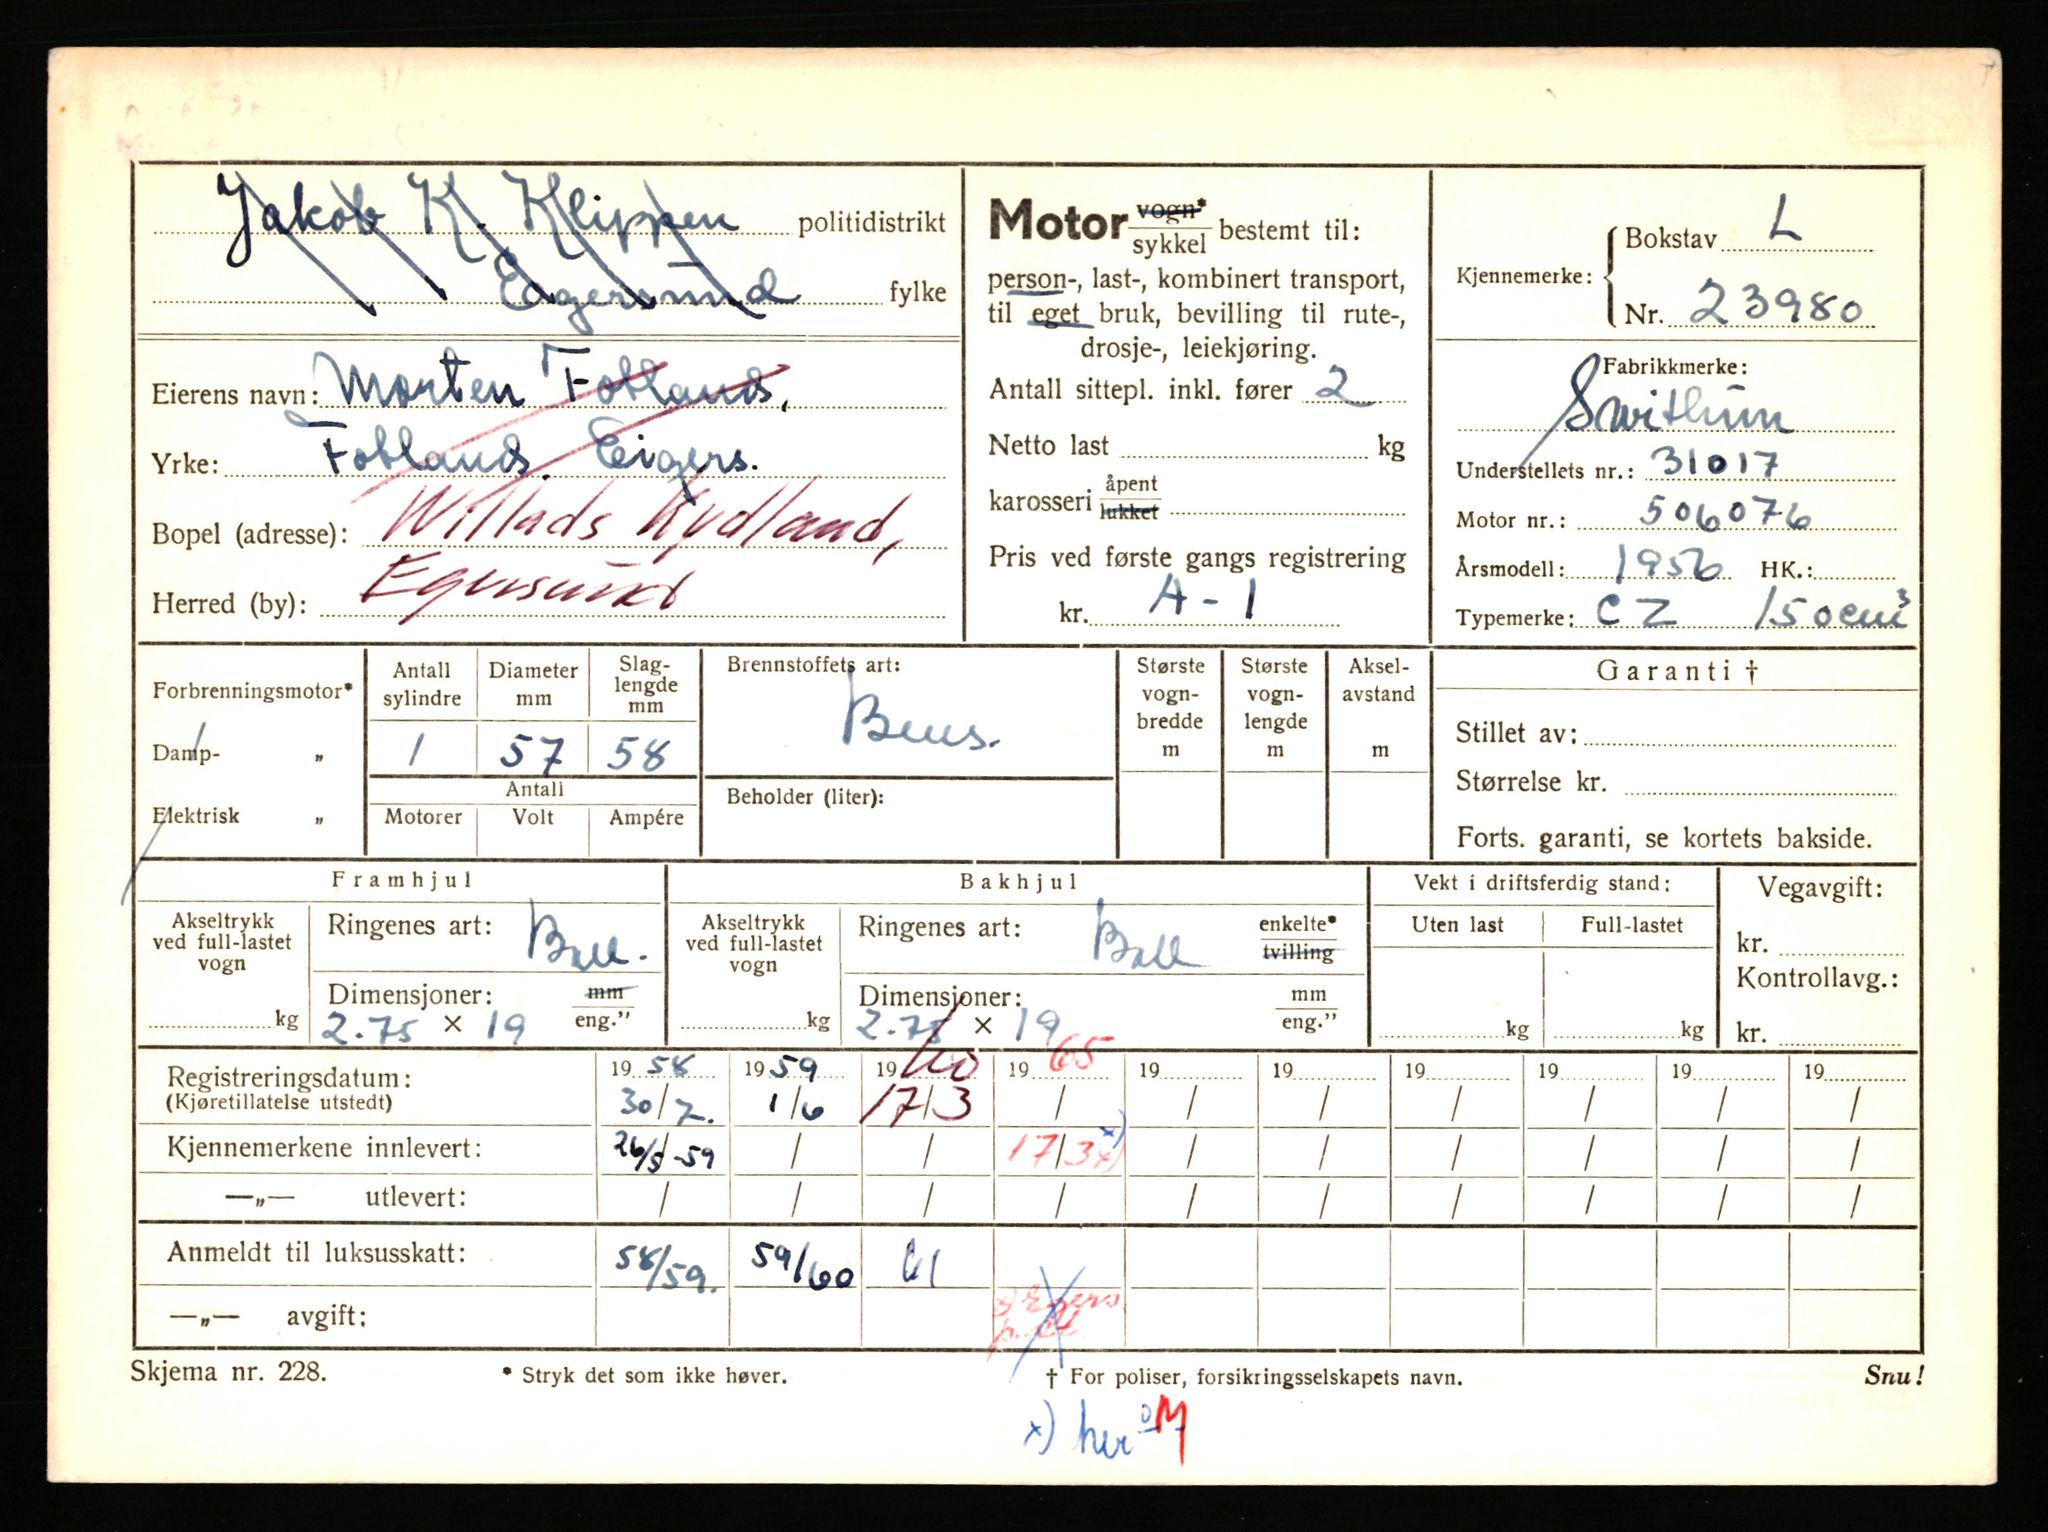 Jakob K. Klippen politidistrikt
Egersund fylke
Eierens navn: Morten Fotlands,
Yrke: Fotland. Eigers.
Bopel (adresse): Willads Kydland,
Herred (by): Egersund
Motor vogn* / sykkel bestemt til:
person-, last-, kombinert transport,
til eget bruk, bevilling til rute-,
drosje-, leiekjøring.
Antall sittepl. inkl. fører 2
Netto last kg
karosseri åpent / lukket
Pris ved første gangs registrering
kr. A-1
Kjennemerke: Bokstav L
Nr. 23980
Fabrikkmerke:
Swithun
Understellets nr.: 31017
Motor nr.: 506076
Årsmodell: 1956 HK.:
Typemerke: CZ 150 cm³
Forbrenningsmotor*
Damp- „
Elektrisk „
Antall sylindre Diameter mm Slag-lengde mm
1 57 58
Antall
Motorer Volt Ampére
Brennstoffets art:
Bens.
Beholder (liter):
Største vogn-bredde m
Største vogn-lengde m
Aksel-avstand m
Garanti †
Stillet av:
Størrelse kr.
Forts. garanti, se kortets bakside.
Framhjul
Akseltrykk ved full-lastet vogn kg
Ringenes art: Ball.
Dimensjoner: mm / eng."
2.75 × 19
Bakhjul
Akseltrykk ved full-lastet vogn kg
Ringenes art: Ball enkelte* / tvilling
Dimensjoner: mm / eng."
2.75 × 19
Vekt i driftsferdig stand:
Uten last Full-lastet
kg kg
Vegavgift:
kr.
Kontrollavg.:
kr.
Registreringsdatum: 19 58 19 59 19 60 19 65 19 19 19 19 19 19
(Kjøretillatelse utstedt) 30/7. 1/6 17/3 / / / / / / /
Kjennemerkene innlevert: 26/5-59 / / 17/3 x) / / / / / /
—„— utlevert: / / / / / / / / / /
Anmeldt til luksusskatt: 58/59. 59/60 61
—„— avgift:
Skjema nr. 228. * Stryk det som ikke høver. † For poliser, forsikringsselskapets navn. Snu!
x) her